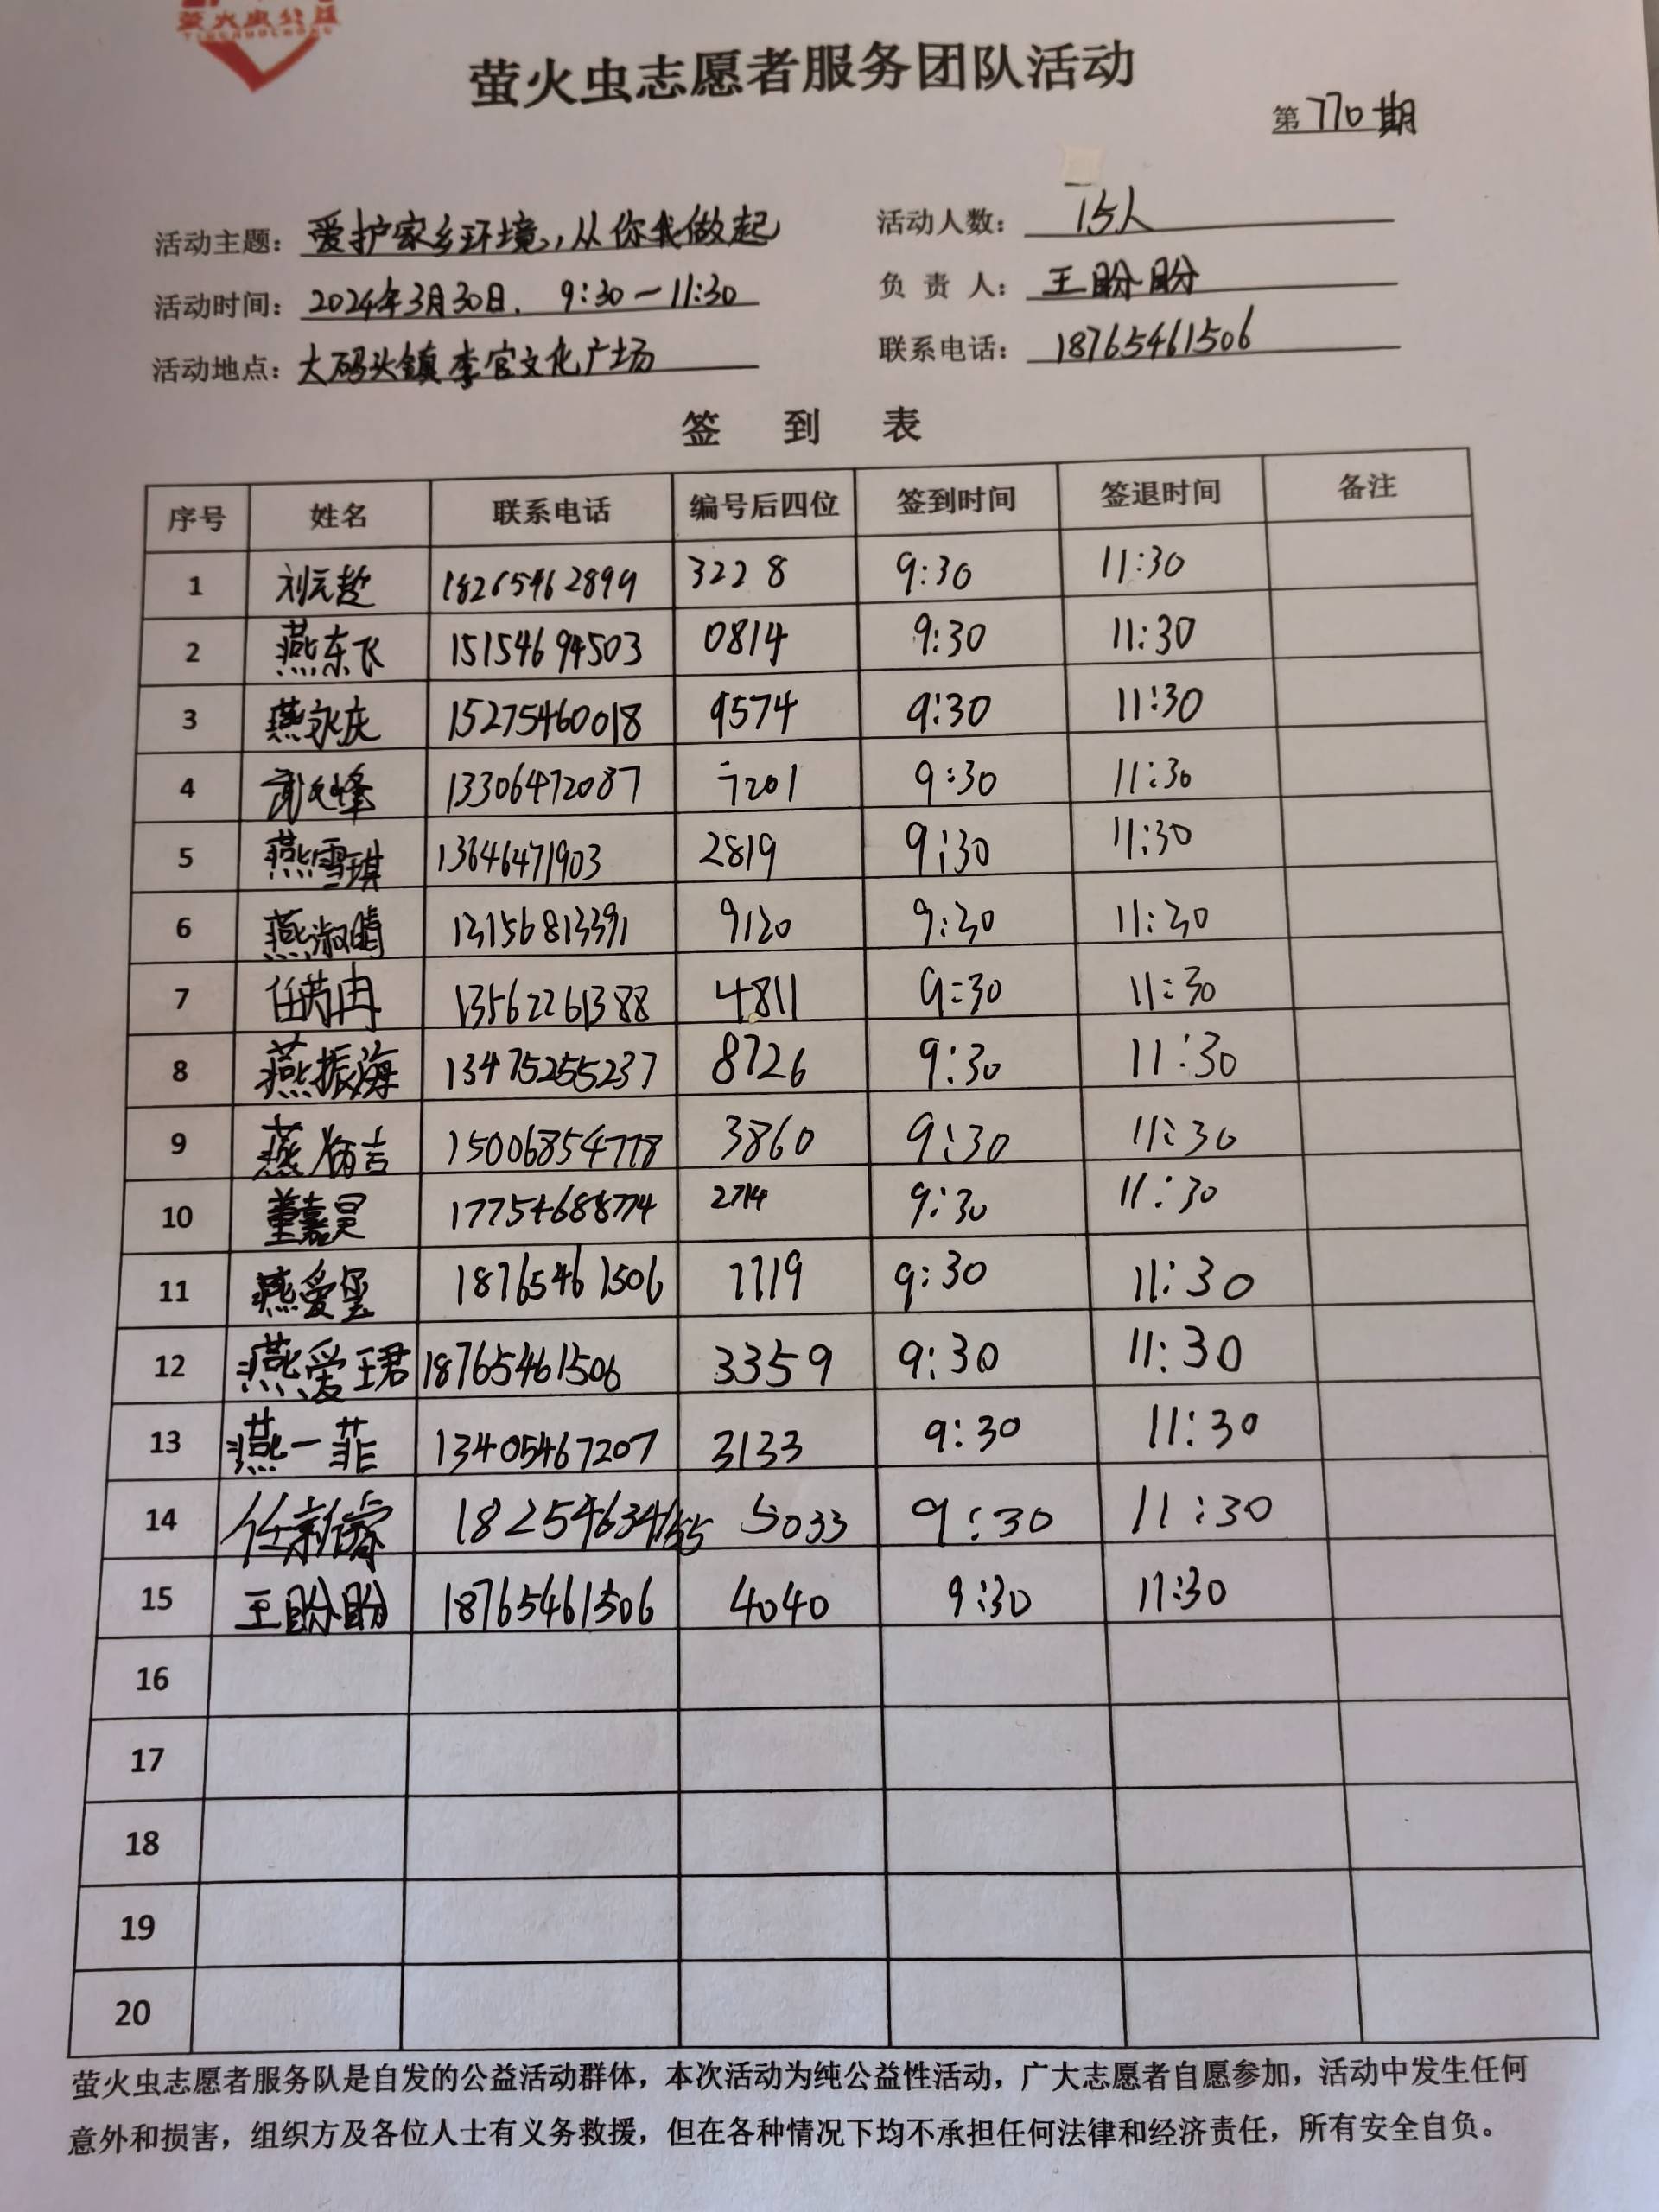 萤火虫公益
萤火虫志愿者服务团队活动
第770期
活动主题：爱护家乡环境，从你我做起 活动人数：15人
活动时间：2024年3月30日. 9:30一11:30 负责人：王盼盼
活动地点：大码头镇李官文化广场 联系电话：18765461506
签到表
序号 姓名 联系电话 编号后四位 签到时间 签退时间 备注
1 刘云超 18265462899 3228 9:30 11:30
2 燕东飞 15154694503 0814 9:30 11:30
3 燕永庆 15275460018 9574 9:30 11:30
4 13306472087 7201 9:30 11:30
5 燕雪琪 13646471903 2819 9:30 11:30
6 燕淑晴 13156813391 9120 9:30 11:30
7 任芮冉 13562261388 4811 9:30 11:30
8 燕振海 13475255237 8726 9:30 11:30
9 燕 吉 15006854778 3860 9:30 11:30
10 董嘉昊 17754688774 2714 9:30 11:30
11 燕爱玺 18765461506 7719 9:30 11:30
12 燕爱珺 18765461506 3359 9:30 11:30
13 燕一菲 13405467207 3133 9:30 11:30
14 任 睿 18254634155 5033 9:30 11:30
15 王盼盼 18765461506 4040 9:30 11:30
16
17
18
19
20
萤火虫志愿者服务队是自发的公益活动群体，本次活动为纯公益性活动，广大志愿者自愿参加，活动中发生任何
意外和损害，组织方及各位人士有义务救援，但在各种情况下均不承担任何法律和经济责任，所有安全自负。